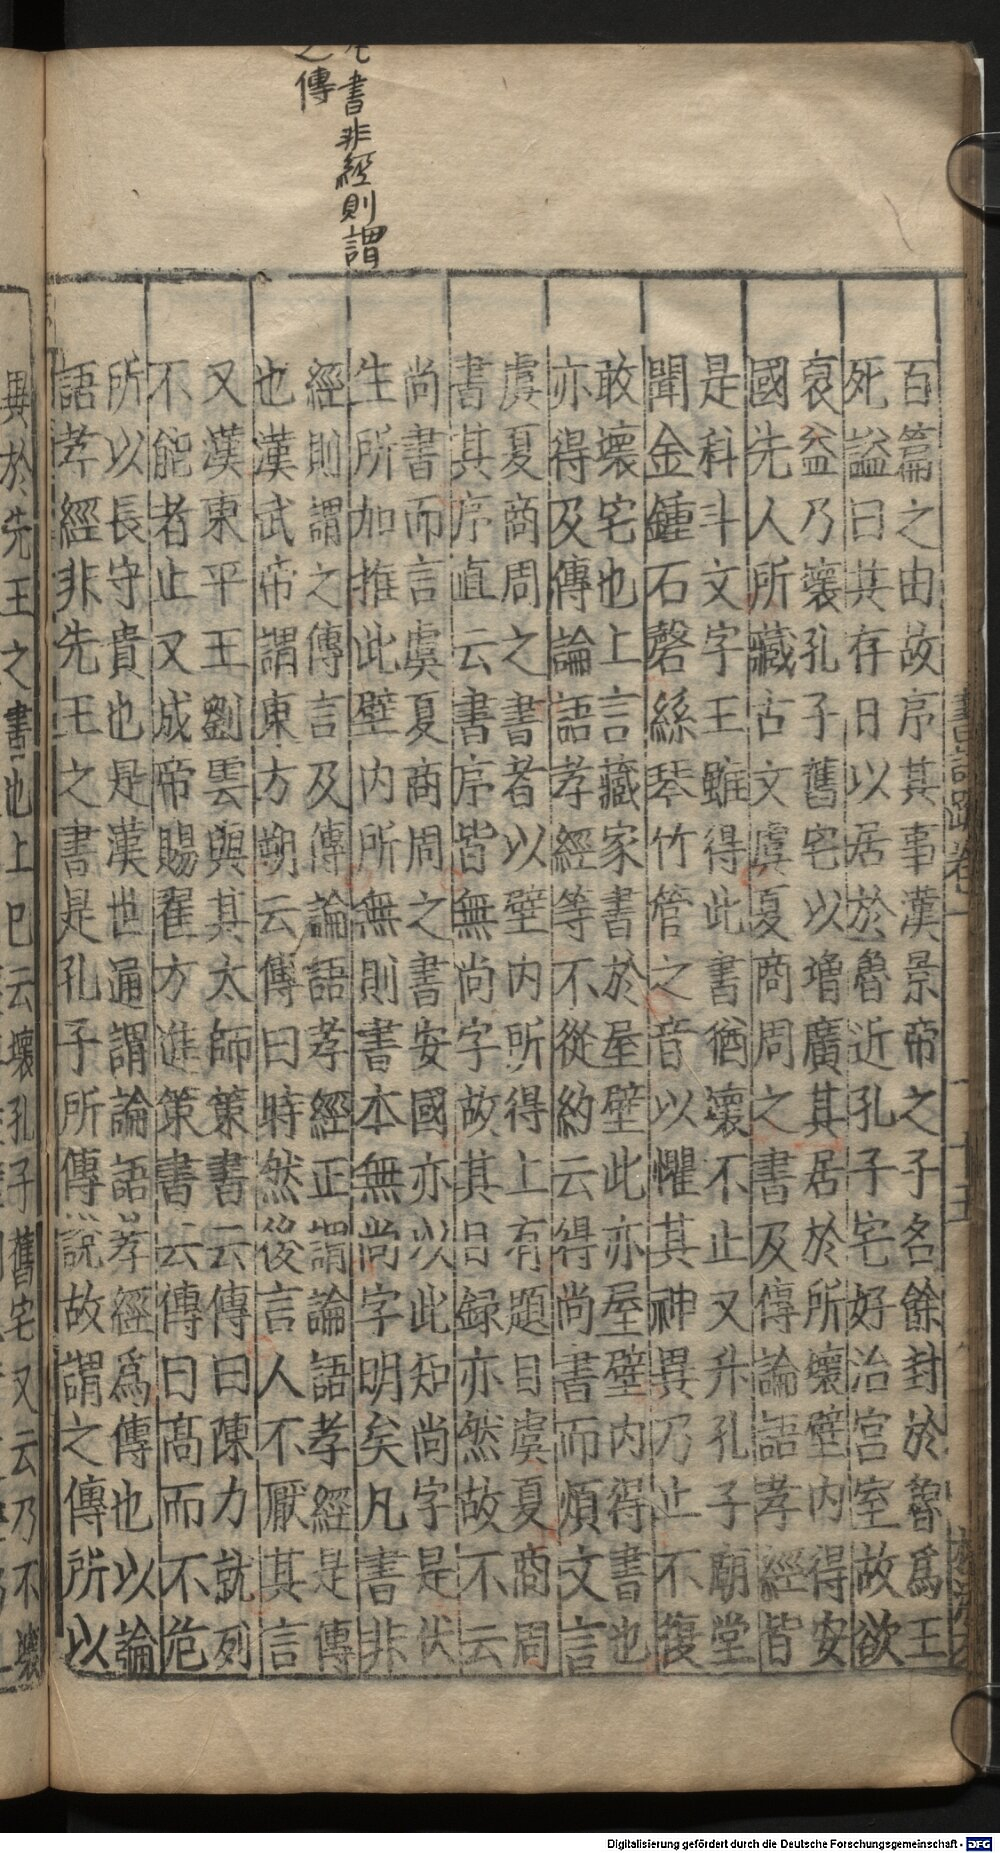 凡書非經則謂
之傳
百篇之由故序其事漢景帝之子名餘封於魯爲王
死謚曰共存日以居於魯近孔子宅好治宮室故欲
裒益乃壞孔子舊宅以增廣其居於所壞壁內得安
國先人所藏古文虞夏商周之書及傳論語孝經皆
是科斗文字王雖得此書猶壞不止又升孔子廟堂
聞金鍾石磬絲琴竹管之音以懼其神異乃止不復
敢壞宅也上言藏家書於屋壁此亦屋壁內得書也
亦得及傳論語孝經等不從約云得尚書而煩文言
虞夏商周之書者以壁內所得上有題目虞夏商周
書其序直云書序皆無尚字故其目録亦然故不云
尚書而言虞夏商周之書安國亦以此知尚字是伏
生所加推此壁內所無則書本無尚字明矣凡書非
經則謂之傳言及傳論語孝經正謂論語孝經是傳
也漢武帝謂東方朔云傳曰時然後言人不厭其言
又漢東平王劉雲與其太師策書云傳曰陳力就列
不能者止又成帝賜翟方進策書云傳曰高而不危
所以長守貴也是漢世通謂論語孝經爲傳也以論
語孝經非先王之書是孔子所傳說故謂之傳所以
異於先王之書也上已云壞孔子舊宅又云乃不壞
Digitalisierung gefördert durch die Deutsche Forschungsgemeinschaft - DFG